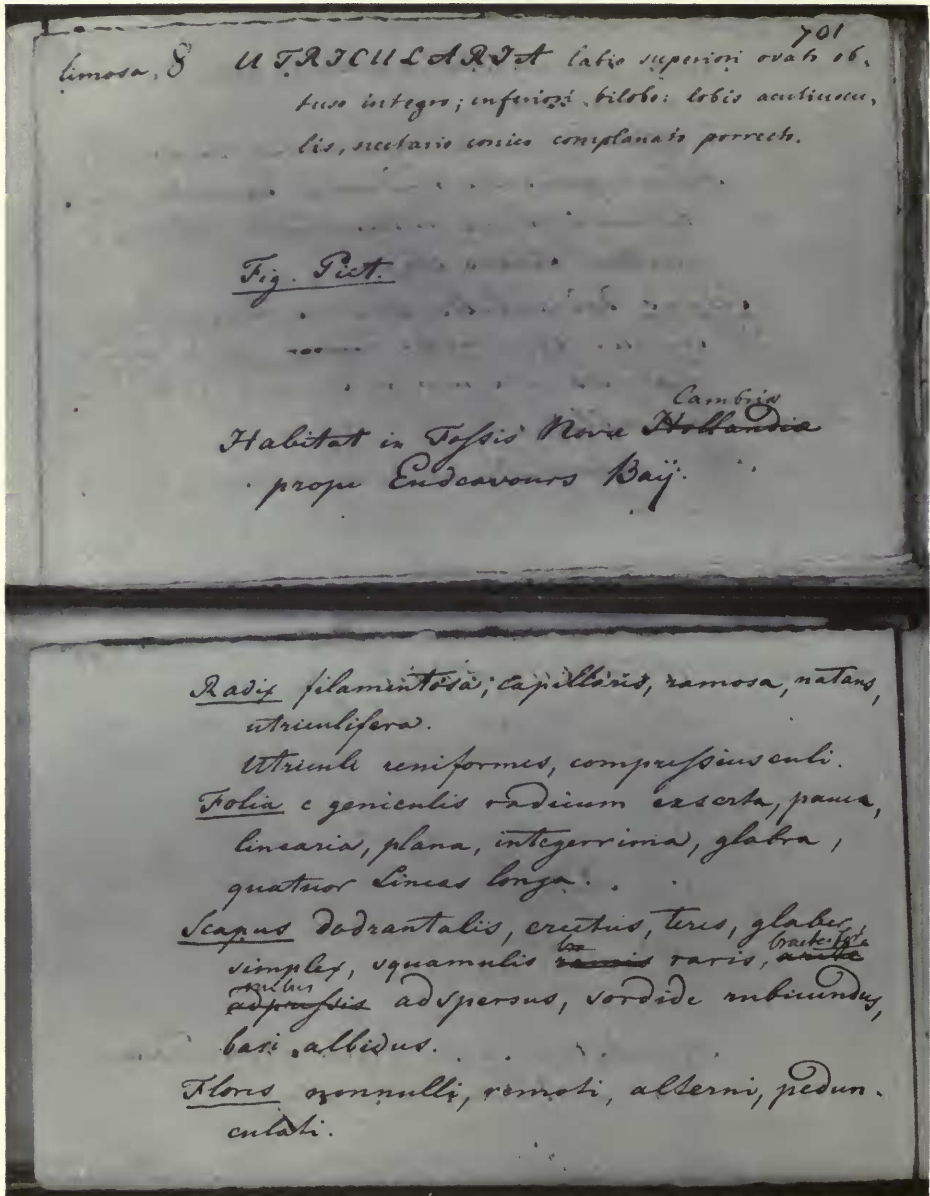 701
limosa. 8 UTRICULARIA labio superiori ovato ob-
tuso integro; inferiori bilobo: lobis acutiuscu-
lis, nectario conico complanato porrecto.
Fig. Pict.
Cambria
Habitat in Fossis Novæ Hollandiæ
prope Endeavours Baÿ.
Radix filamentosa, capillaris, ramosa, natans,
utriculifera.
Utriculi reniformes, compressiusculi.
Folia e geniculis radicum exserta, pauca,
linearia, plana, integerrima, glabra,
quatuor Lineas longa.
Scapus dodrantalis, erectus, teres, glaber,
simplex, squamulis raris,
adpressis adspersus, sordide rubicundus,
basi albidus.
Flores nonnulli, remoti, alterni, pedun-
culati.